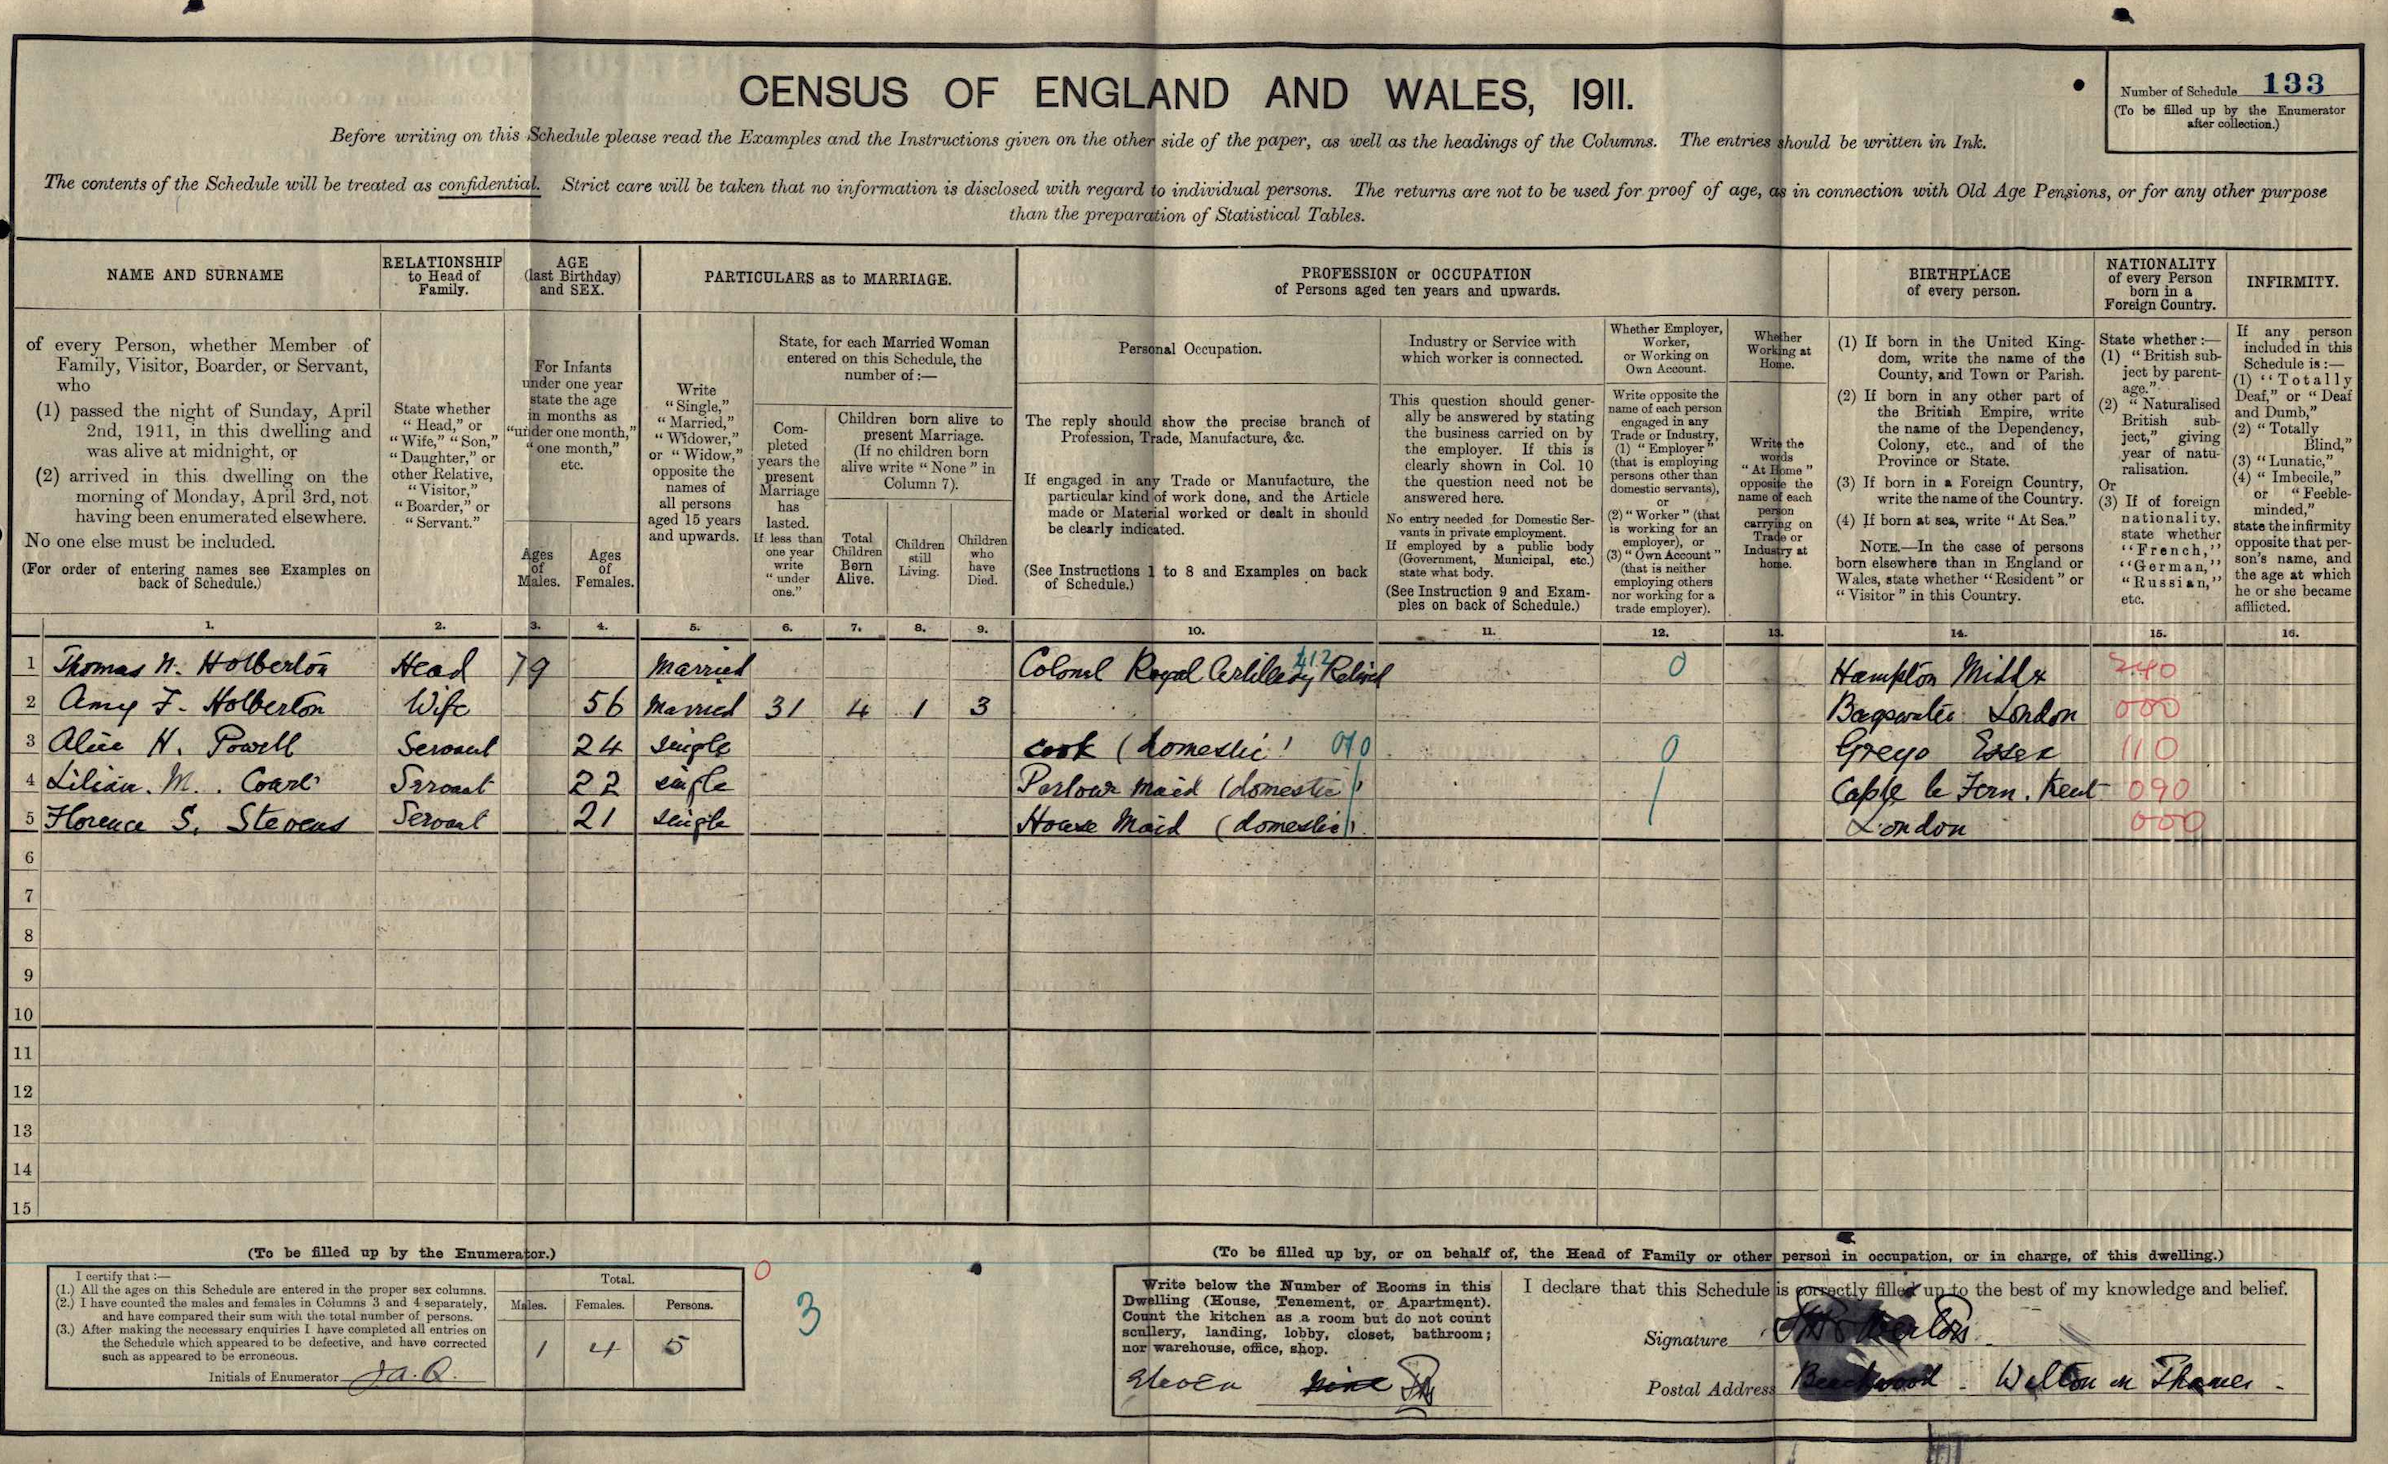 CENSUS OF ENGLAND AND WALES, 1911.
Number of Schedule 133
(To be filled up by the Enumerator
after collection.)
Before writing on this Schedule please read the Examples and the Instructions given on the other side of the paper, as well as the headings of the Columns. The entries should be written in Ink.
The contents of the Schedule will be treated as confidential. Strict care will be taken that no information is disclosed with regard to individual persons. The returns are not to be used for proof of age, as in connection with Old Age Pensions, or for any other purpose
than the preparation of Statistical Tables.
NAME AND SURNAME
of every Person, whether Member of
Family, Visitor, Boarder, or Servant,
who
(1) passed the night of Sunday, April
2nd, 1911, in this dwelling and
was alive at midnight, or
(2) arrived in this dwelling on the
morning of Monday, April 3rd, not
having been enumerated elsewhere.
No one else must be included.
(For order of entering names see Examples on
back of Schedule.)
RELATIONSHIP
to Head of
Family.
State whether
"Head," or
"Wife," "Son,"
"Daughter," or
other Relative,
"Visitor,"
"Boarder," or
"Servant."
AGE
(last Birthday)
and SEX.
For Infants
under one year
state the age
in months as
"under one month,"
"one month,"
etc.
Ages
of
Males.
Ages
of
Females.
PARTICULARS as to MARRIAGE.
Write
"Single,"
"Married,"
"Widower,"
or "Widow,"
opposite the
names of
all persons
aged 15 years
and upwards.
State, for each Married Woman
entered on this Schedule, the
number of:—
Com-
pleted
years the
present
Marriage
has
lasted.
If less than
one year
write
"under
one."
Children born alive to
present Marriage.
(If no children born
alive write "None" in
Column 7).
Total
Children
Born
Alive.
Children
still
Living.
Children
who
have
Died.
PROFESSION or OCCUPATION
of Persons aged ten years and upwards.
Personal Occupation.
The reply should show the precise branch of
Profession, Trade, Manufacture, &c.
If engaged in any Trade or Manufacture, the
particular kind of work done, and the Article
made or Material worked or dealt in should
be clearly indicated.
(See Instructions 1 to 8 and Examples on back
of Schedule.)
Industry or Service with
which worker is connected.
This question should gener-
ally be answered by stating
the business carried on by
the employer. If this is
clearly shown in Col. 10
the question need not be
answered here.
No entry needed for Domestic Ser-
vants in private employment.
If employed by a public body
(Government, Municipal, etc.)
state what body.
(See Instruction 9 and Exam-
ples on back of Schedule.)
Whether Employer,
Worker,
or Working on
Own Account.
Write opposite the
name of each person
engaged in any
Trade or Industry,
(1) "Employer"
(that is employing
persons other than
domestic servants),
or
(2) "Worker" (that
is working for an
employer), or
(3) "Own Account"
(that is neither
employing others
nor working for a
trade employer).
Whether
Working at
Home.
Write the
words
"At Home"
opposite the
name of each
person
carrying on
Trade or
Industry at
home.
BIRTHPLACE
of every person.
(1) If born in the United King-
dom, write the name of the
County, and Town or Parish.
(2) If born in any other part of
the British Empire, write
the name of the Dependency,
Colony, etc., and of the
Province or State.
(3) If born in a Foreign Country,
write the name of the Country.
(4) If born at sea, write "At Sea."
NOTE.—In the case of persons
born elsewhere than in England or
Wales, state whether "Resident" or
"Visitor" in this Country.
NATIONALITY
of every Person
born in a
Foreign Country.
State whether:—
(1) "British sub-
ject by parent-
age."
(2) "Naturalised
British sub-
ject," giving
year of natu-
ralisation.
Or
(3) If of foreign
nationality,
state whether
"French,"
"German,"
"Russian,"
etc.
INFIRMITY.
If any person
included in this
Schedule is:—
(1) "Totally
Deaf," or "Deaf
and Dumb,"
(2) "Totally
Blind,"
(3) "Lunatic,"
(4) "Imbecile,"
or "Feeble-
minded,"
state the infirmity
opposite that per-
son's name, and
the age at which
he or she became
afflicted.
1. 2. 3. 4. 5. 6. 7. 8. 9. 10. 11. 12. 13. 14. 15. 16.
1 Thomas N. Holberton Head 79 Married Colonel Royal Artillery Retired 412 0 Hampton Middx 240
2 Amy F. Holberton Wife 56 Married 31 4 1 3 Bayswater London 000
3 Alice H. Powell Servant 24 single cook (domestic) 010 0 Grays Essex 110
4 Lilian. M. Servant 22 single Parlour Maid (domestic) Caple le Fern. Kent 090
5 Florence S. Stevens Servant 21 single House Maid (domestic) London 000
6
7
8
9
10
11
12
13
14
15
(To be filled up by the Enumerator.)
I certify that:—
(1.) All the ages on this Schedule are entered in the proper sex columns.
(2.) I have counted the males and females in Columns 3 and 4 separately,
and have compared their sum with the total number of persons.
(3.) After making the necessary enquiries I have completed all entries on
the Schedule which appeared to be defective, and have corrected
such as appeared to be erroneous.
Initials of Enumerator
Total.
Males. Females. Persons.
1 4 5
0
3
(To be filled up by, or on behalf of, the Head of Family or other person in occupation, or in charge, of this dwelling.)
Write below the Number of Rooms in this
Dwelling (House, Tenement, or Apartment).
Count the kitchen as a room but do not count
scullery, landing, lobby, closet, bathroom;
nor warehouse, office, shop.
Eleven nine
I declare that this Schedule is correctly filled up to the best of my knowledge and belief.
Signature
Postal Address Beechwood - Walton on Thames -